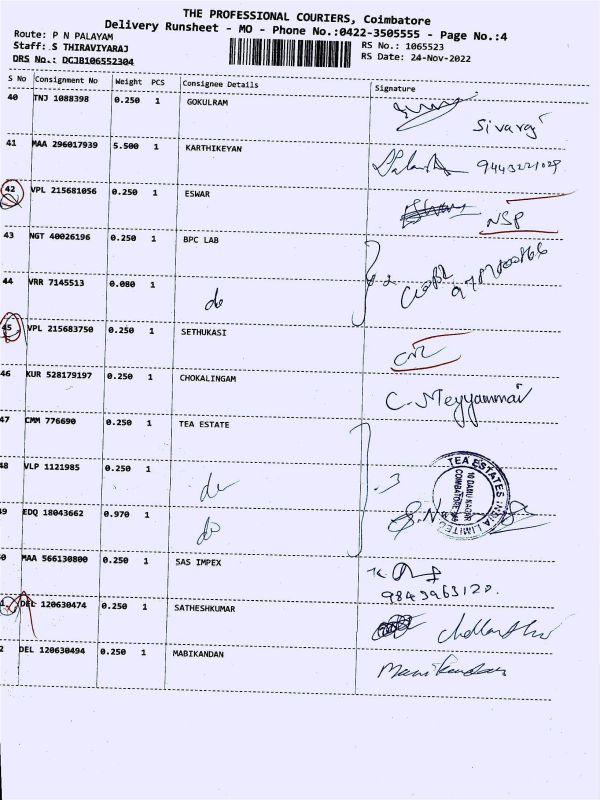 THE PROFESSIONAL COURIERS, Coimbatore
Delivery Runsheet - MO - Phone No.:0422-3505555 - Page No.:4
Route: P N PALAYAM
RS No.: 1065523
Staff: S THIRAVIYARAJ
RS Date: 24-Nov-2022
DRS No.: DCJB106552304
S No Consignment No Weight PCS Consignee Details Signature
40 TNJ 1088398 0.250 1 GOKULRAM
41 MAA 296017939 5.500 1 KARTHIKEYAN
42 VPL 215681056 0.250 1 ESWAR NSP
43 NGT 40026196 0.250 1 BPC LAB
44 VRR 7145513 0.080 1 do
45 VPL 215683750 0.250 1 SETHUKASI
46 KUR 528179197 0.250 1 CHOKALINGAM C. Meyyammai
47 CMM 776690 0.250 1 TEA ESTATE
48 VLP 1121985 0.250 1 do
TEA ESTATES INDIA LIMITED
49 EDQ 18043662 0.970 1 do
50 MAA 566130800 0.250 1 SAS IMPEX
9843963120.
DEL 120630474 0.250 1 SATHESHKUMAR
2 DEL 120630494 0.250 1 MABIKANDAN Manikandan